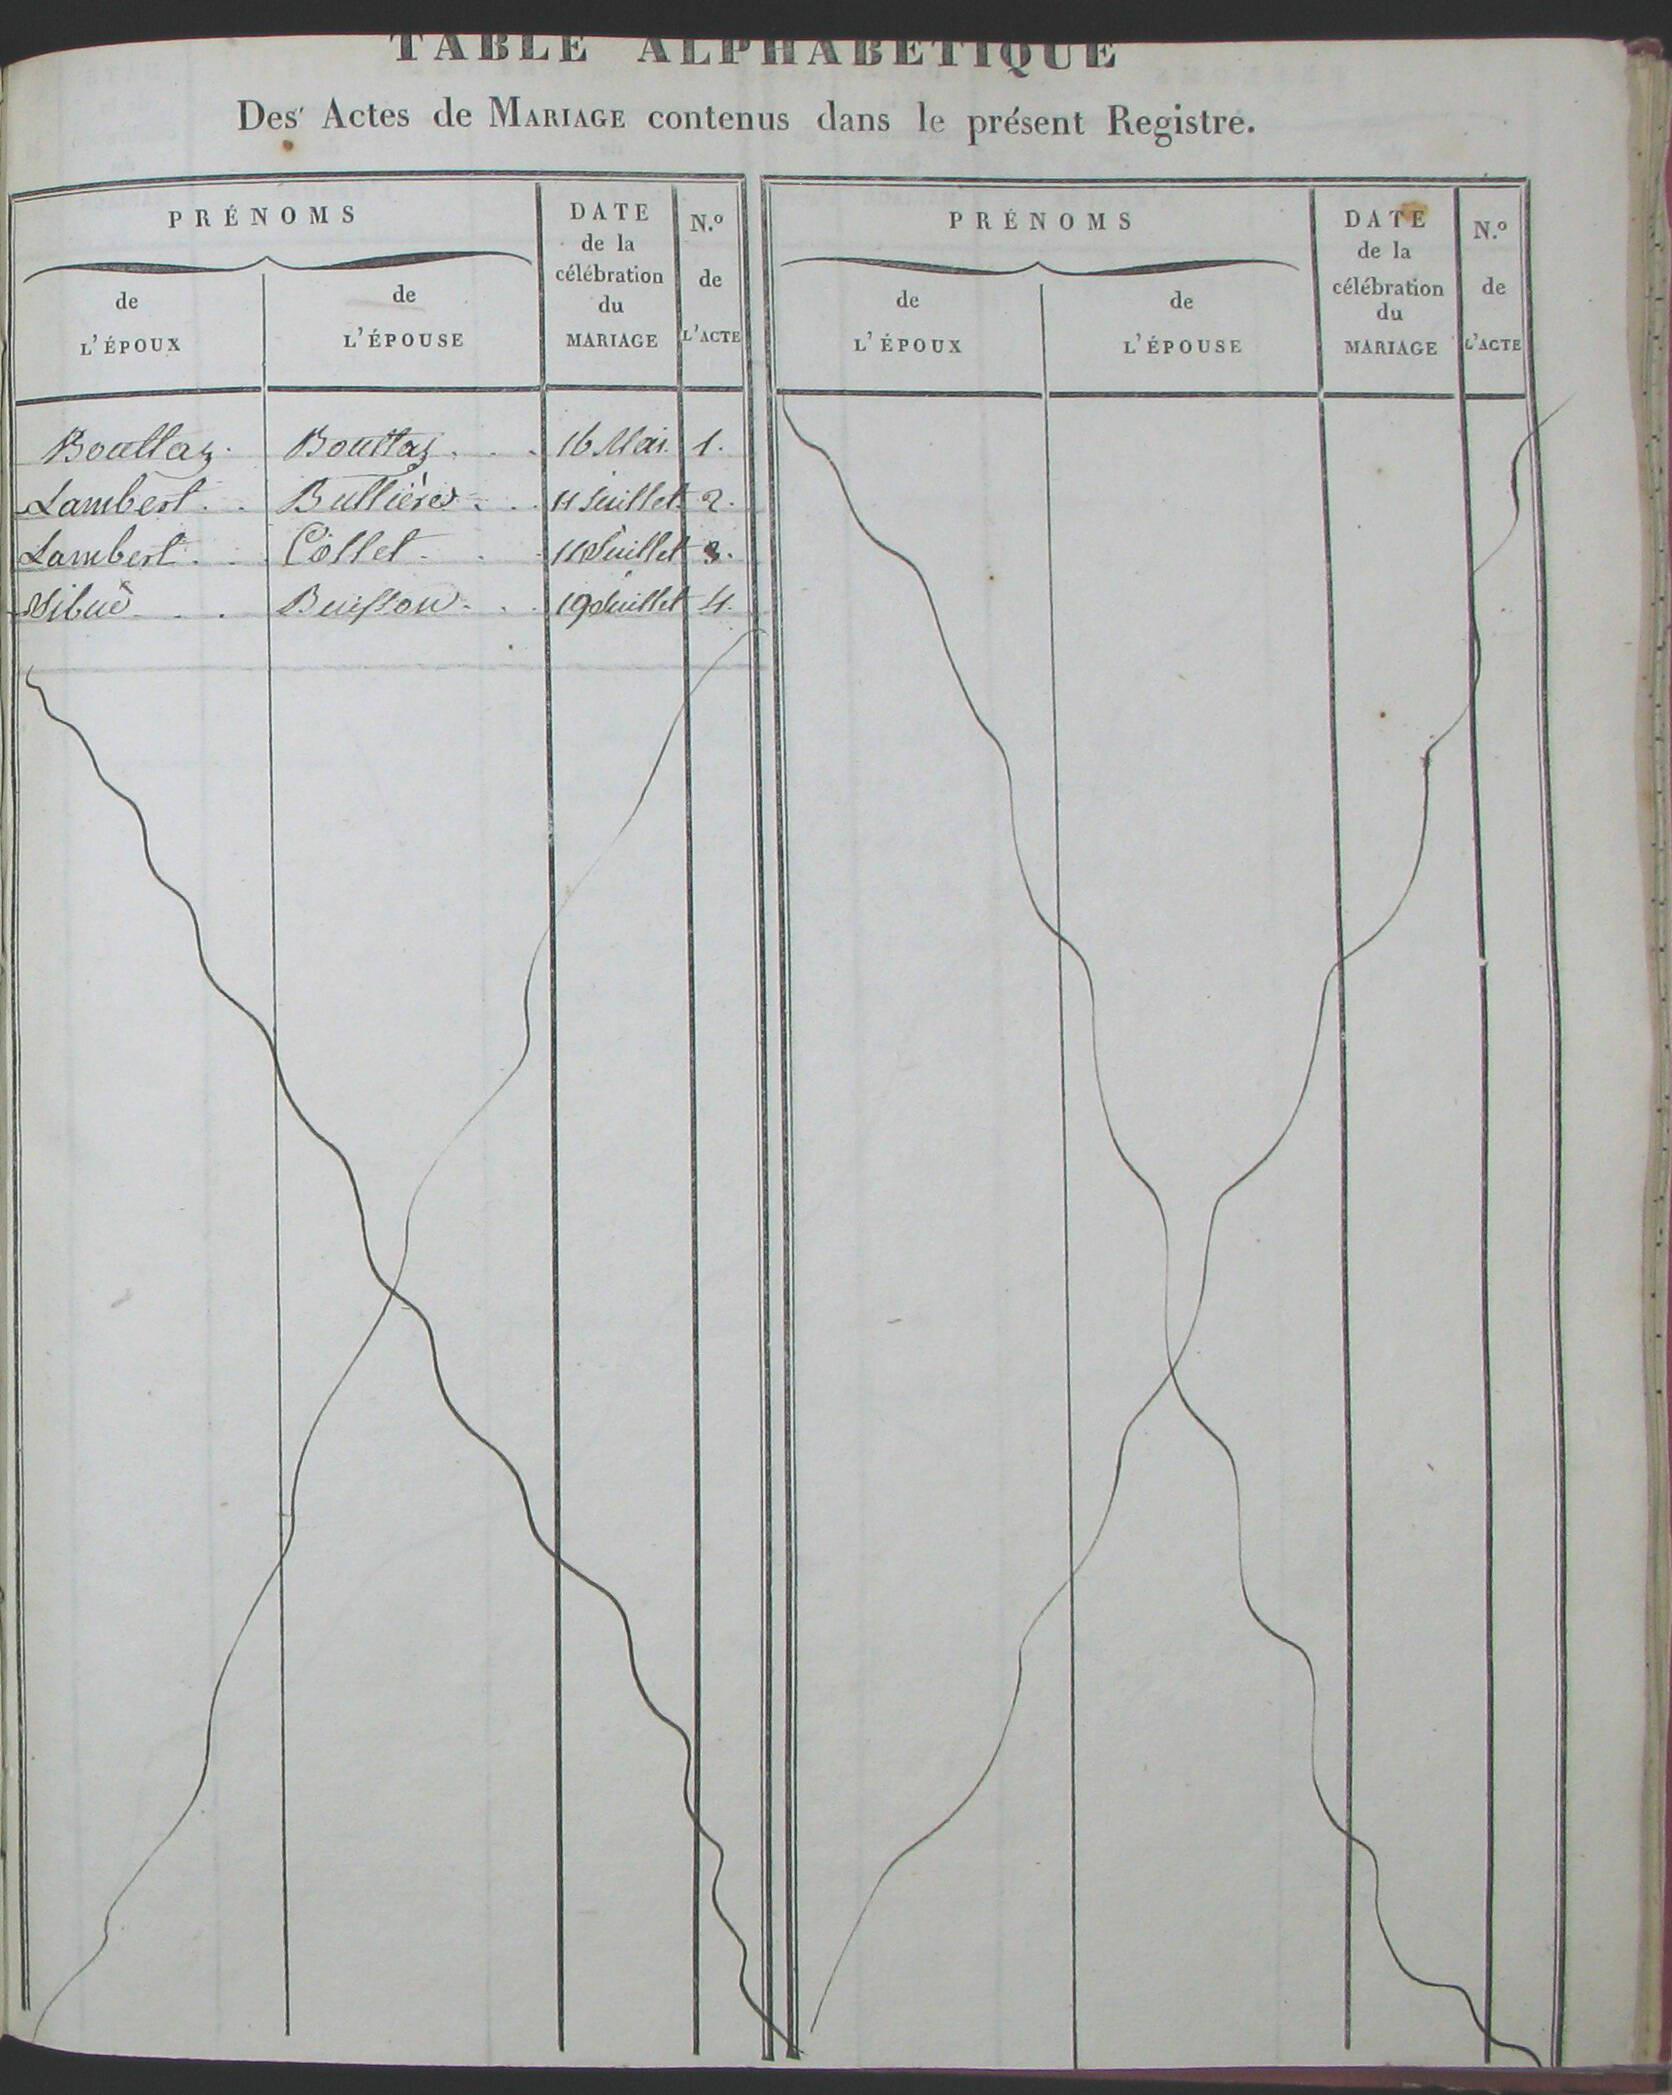 TABLE ALPHABÉTIQUE
Des Actes de MARIAGE contenus dans le présent Registre.
PRÉNOMS
de L'ÉPOUX
de L'ÉPOUSE
DATE de la célébration du MARIAGE
N.º de L'ACTE
Bouttaz. Bouttaz . . . 16 Mai. 1.
Lambert . . Bullières . . 11 Juillet 2.
Lambert . . . Collet . . . 11 Juillet 3.
Sibué . . . Buisson . . . 19 Juillet 4.
PRÉNOMS
de L'ÉPOUX
de L'ÉPOUSE
DATE de la célébration du MARIAGE
N.º de L'ACTE